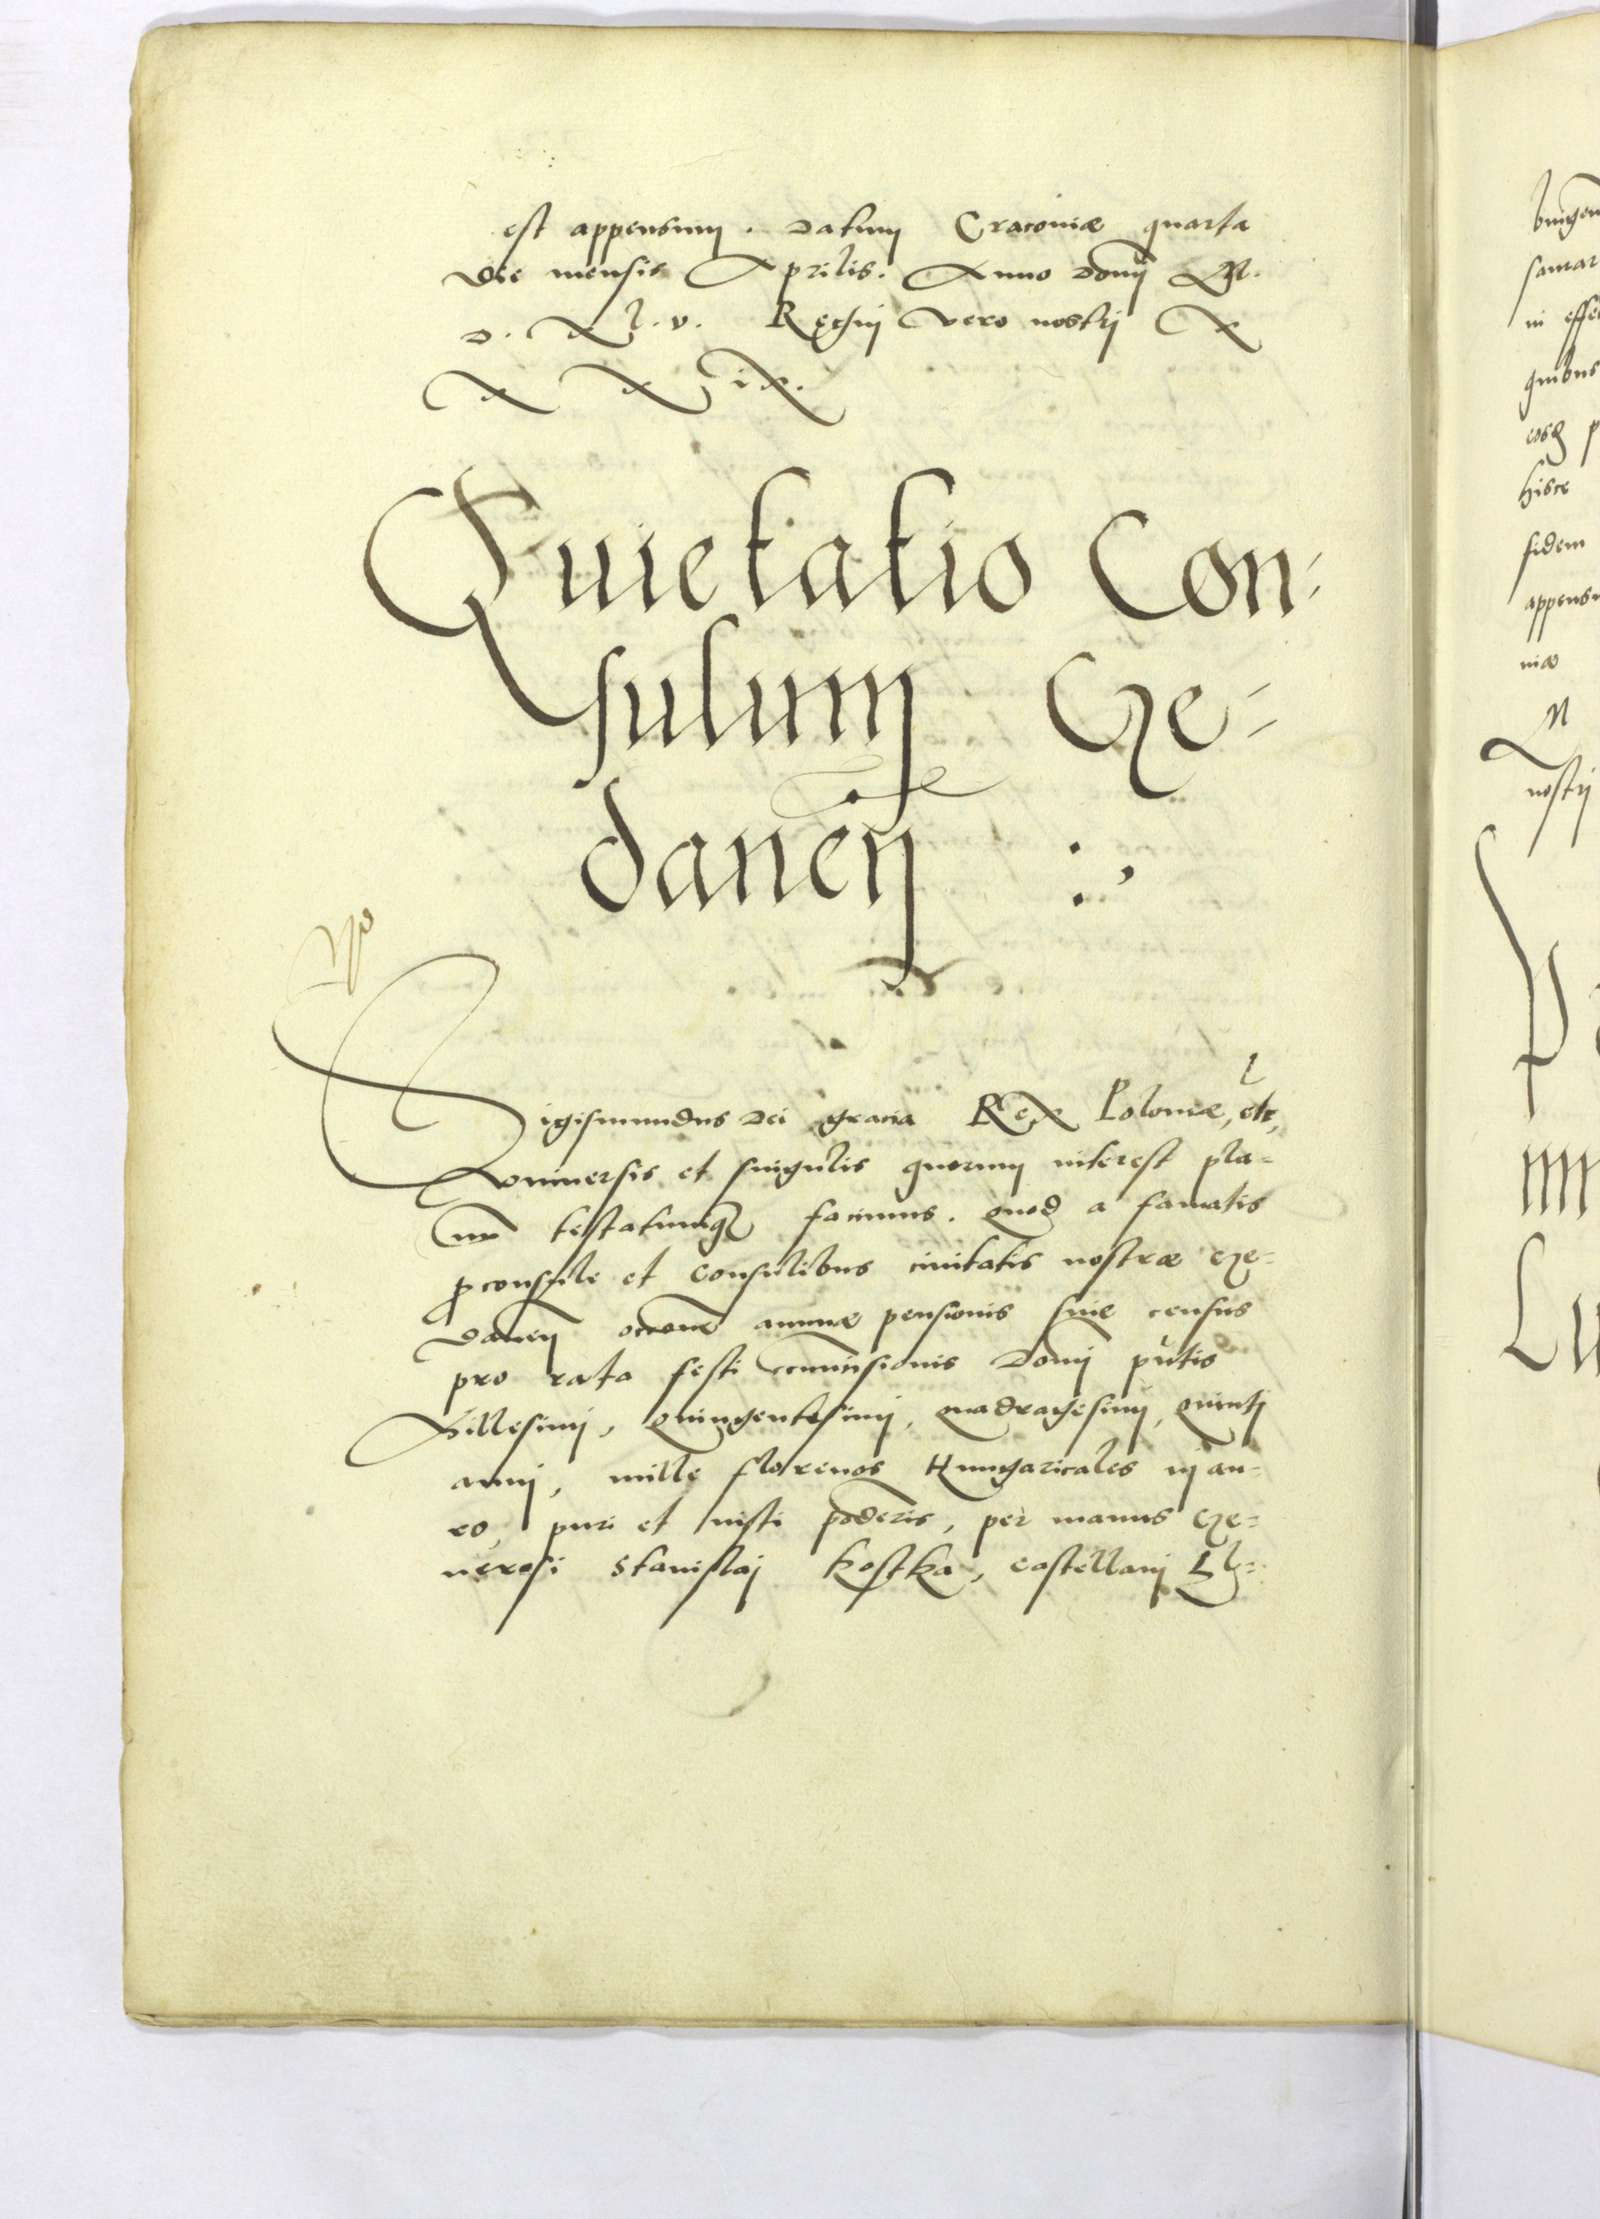 est appensum. Datum Cracoviæ quarta
die mensis Aprilis. Anno Domī M.
D. X l. v. Regni vero nostri X
X X ix.
Quietatio Con-
sulum Ge-
daneñ :,
Sigismundus Dei gracia Rex Poloniæ, etc,
Universis et singulis quorum interest pla-
testatumqȝ facimus. Quod a famatis
ꝓconsule et consulibus civitatis nostræ Ge-
daneñ annuæ pensionis sive census
pro rata festi Domī pñtis
Millesimi, Quingentesimi, quadragesimi, quinti
anni, mille florenos Hungaricales in au-
ro, puri et iusti põderis, per manus Ge-
nerosi Stanislai Kostka, castellani El-
bingen
in effe
quibus
eosqȝ p
hisce
fidem
appensu
niæ
M
nostri